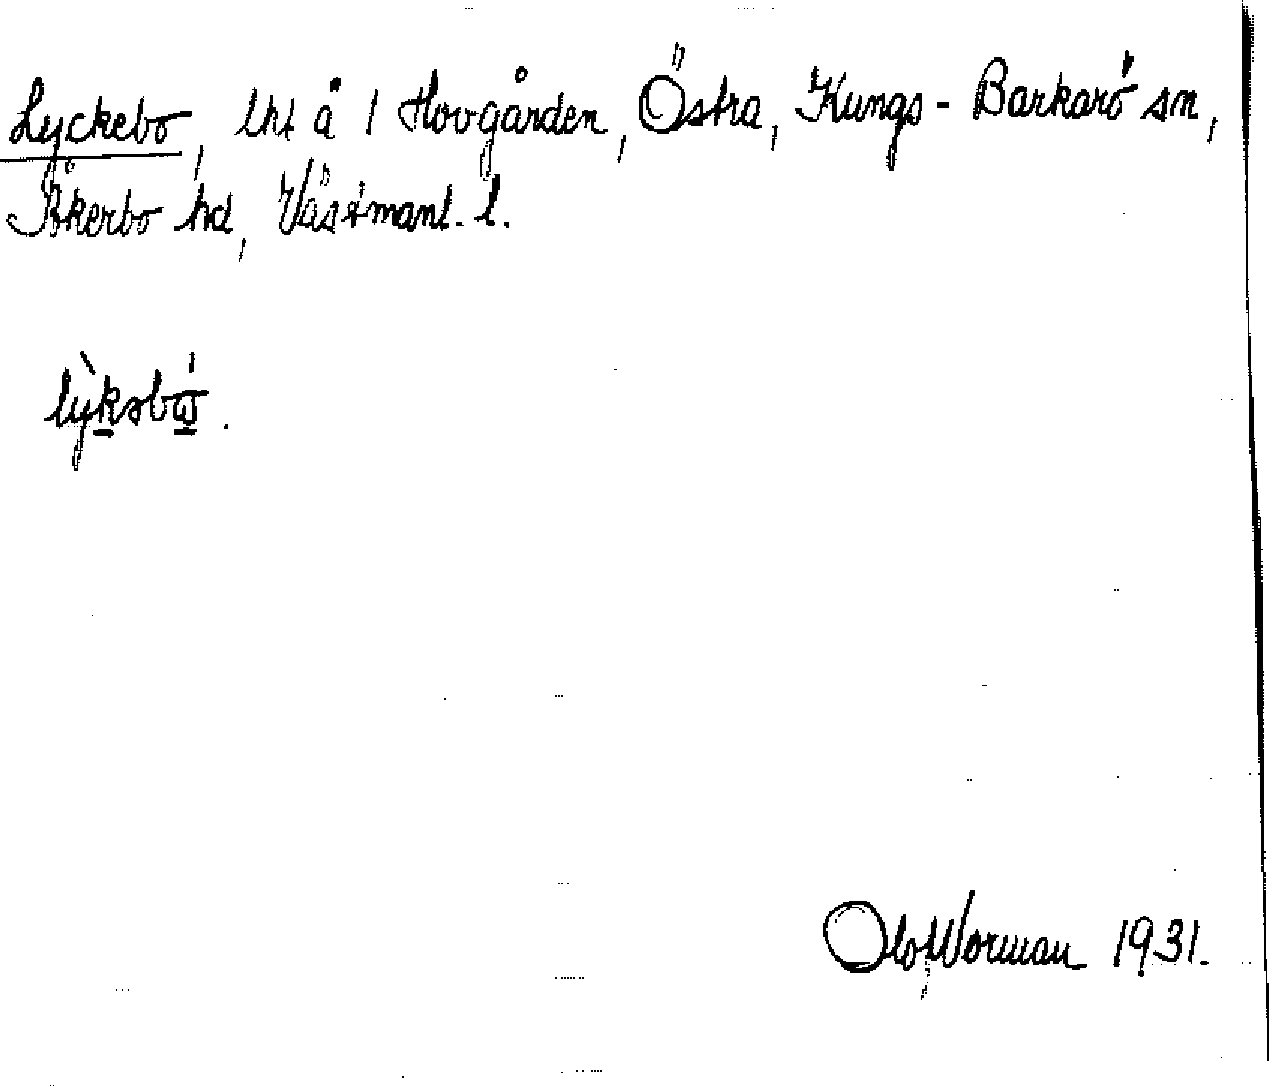 Lyckebo, lht å 1 Hovgården, Östra, Kungs-Barkarö sn,
Åkerbo hd, Västmanl. l.
lỳksbω̄́.
Olof Worman 1931.